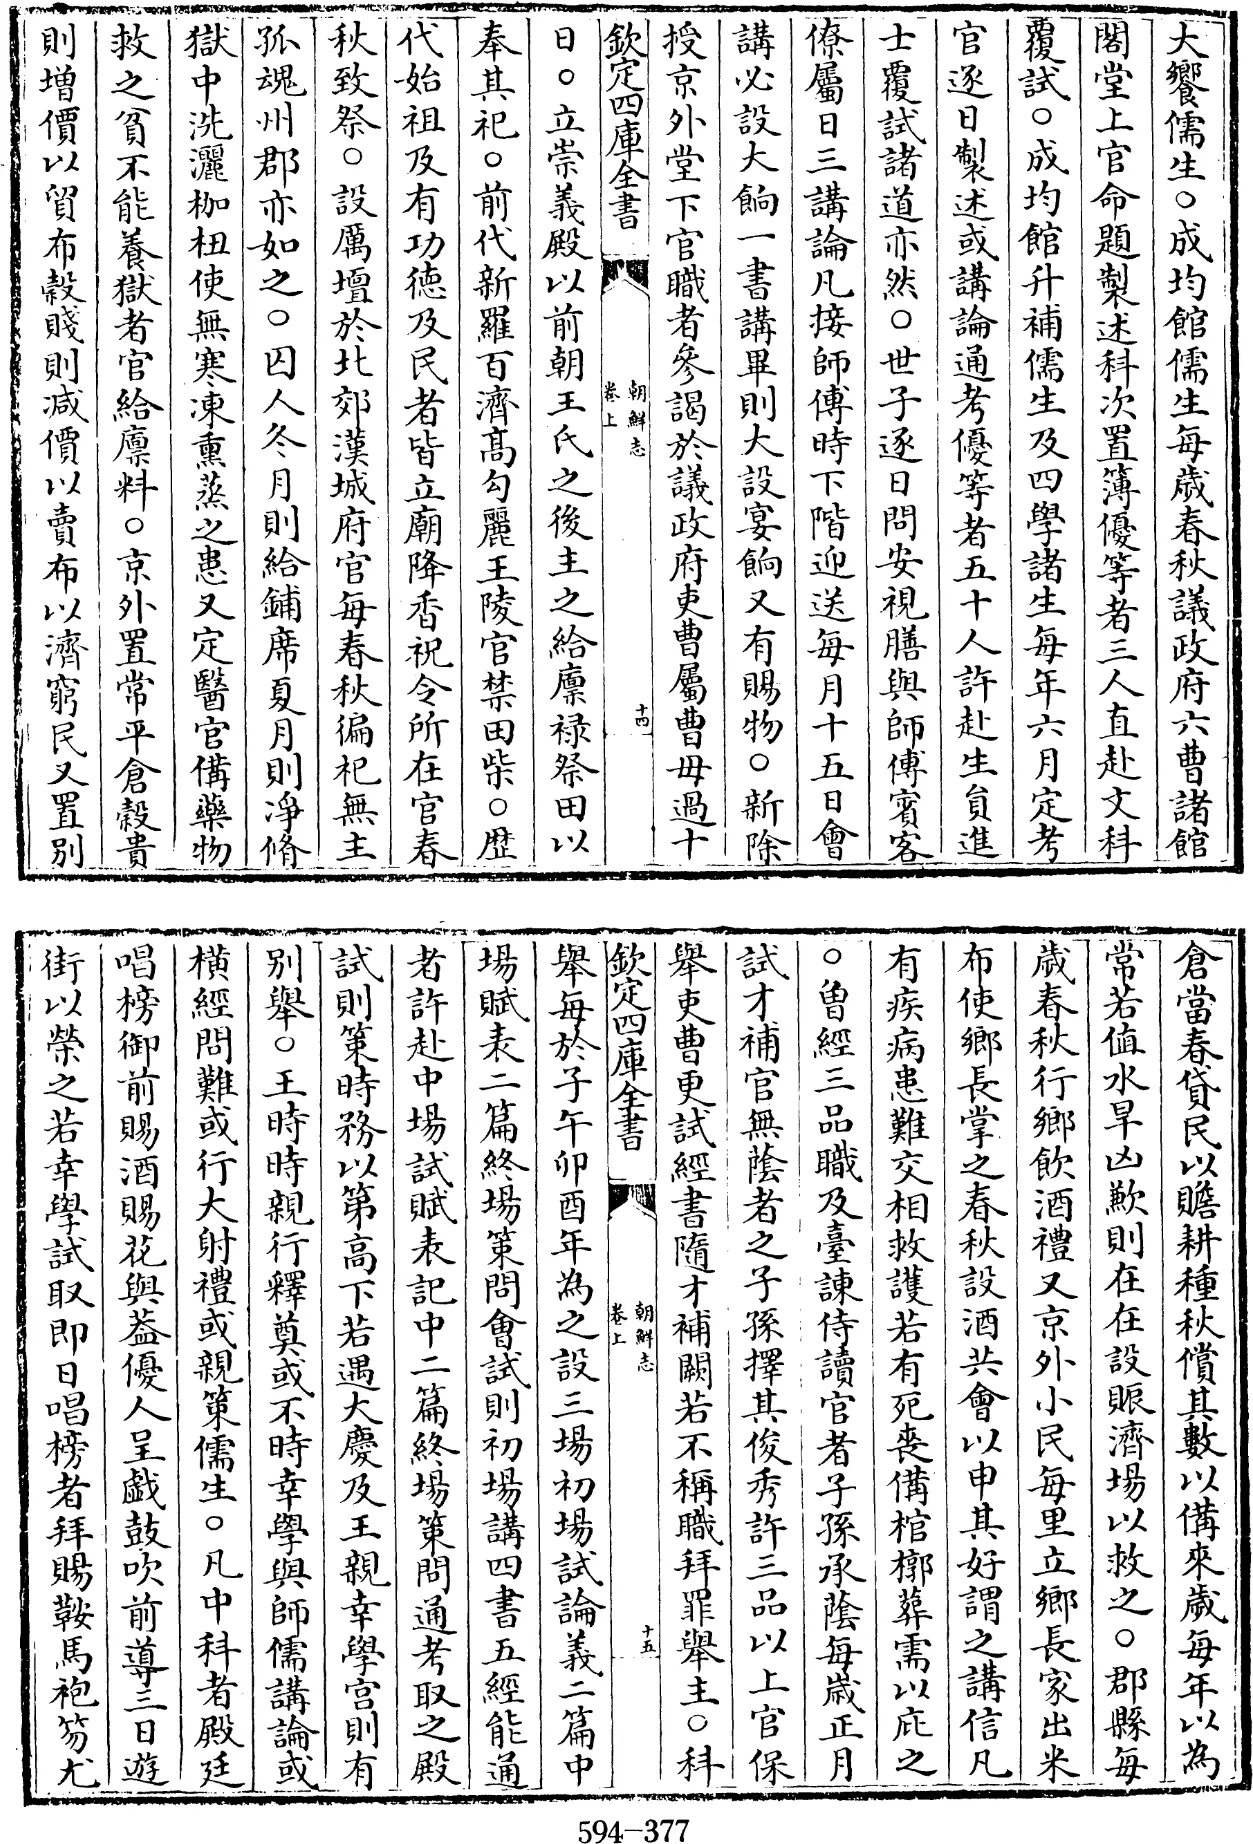 大饗儒生○成均館儒生每歲春秋議政府六曹諸館
閣堂上官命題製述科次置簿優等者三人直赴文科
覆試○成均館升補儒生及四學諸生每年六月定考
官逐日製述或講論通考優等者五十人許赴生負進
士覆試諸道亦然○世子逐日問安視膳與師傅賓客
僚屬日三講論凡接師傅時下階迎送每月十五日會
講必設大餉一書講畢則大設宴餉又有賜物○新除
授京外堂下官職者參謁於議政府吏曹屬曹毋過十
欽定四庫全書
朝鮮志
卷上
十四
日○立崇義殿以前朝王氏之後主之給廩祿祭田以
奉其祀○前代新羅百濟高勾麗王陵官禁田柴○歴
代始祖及有功德及民者皆立廟降香祝令所在官春
秋致祭○設厲壇於北郊漢城府官每春秋徧祀無主
孤魂州郡亦如之○囚人冬月則給鋪席夏月則淨脩
獄中洗灑枷杻使無寒凍熏蒸之患又定醫官備藥物
救之貧不能養獄者官給廪料○京外置常平倉穀貴
則増價以貿布穀賤則減價以賣布以濟窮民又置別
倉當春貸民以贍耕種秋償其數以備來歲每年以為
常若值水旱凶歉則在在設賑濟場以救之○郡縣每
歲春秋行鄉飲酒禮又京外小民每里立鄉長家出米
布使鄉長掌之春秋設酒共會以申其好謂之講信凡
有疾病患難交相救護若有死喪備棺槨葬需以庇之
○曽經三品職及臺諫侍讀官者子孫承蔭每歲正月
試才補官無蔭者之子孫擇其俊秀許三品以上官保
舉吏曹更試經書隨才補闕若不稱職拜罪舉主○科
欽定四庫全書
朝鮮志
卷上
十五
舉每於子午卯酉年為之設三場初場試論義二篇中
場賦表二篇終場策問會試則初場講四書五經能通
者許赴中場試賦表記中二篇終場策問通考取之殿
試則策時務以第高下若遇大慶及王親幸學宮則有
別舉○王時時親行釋奠或不時幸學與師儒講論或
橫經問難或行大射禮或親策儒生○凡中科者殿廷
唱榜御前賜酒賜花與葢優人呈戲鼓吹前導三日遊
街以榮之若幸學試取即日唱榜者拜賜鞍馬袍笏尤
594-377